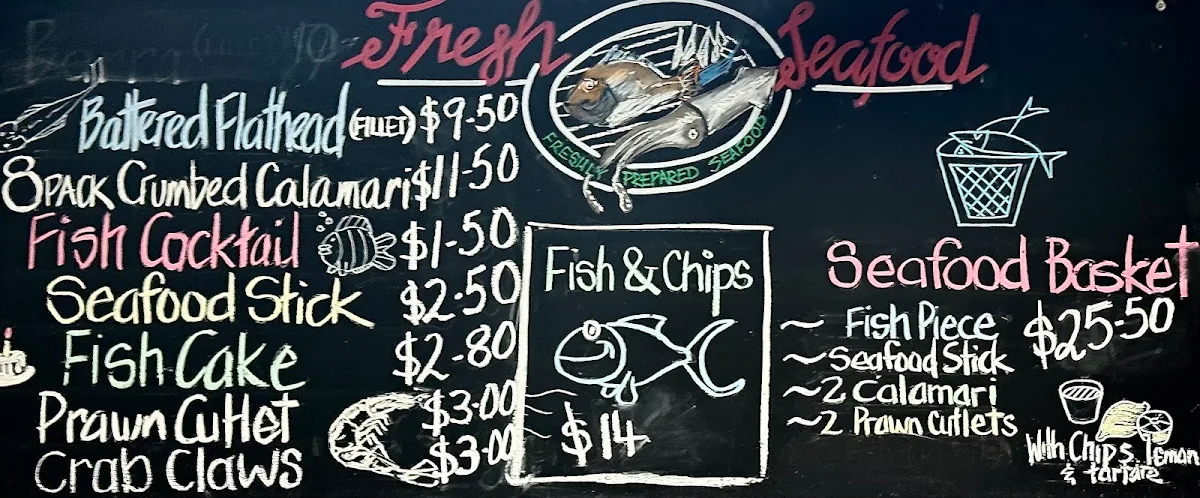 Fresh Seafood
FRESHLY PREPARED SEAFOOD
Battered Flathead (FILLET) $9-50
8 PACK Crumbed Calamari $11-50
Fish Cocktail $1-50
Seafood Stick $2-50
Fish Cake $2-80
Prawn Cutlet $3-00
Crab Claws $3-00
Fish & Chips
$14
Seafood Basket
~ Fish Piece $25-50
~ Seafood Stick
~ 2 Calamari
~ 2 Prawn Cutlets
With Chips, lemon
& tartare